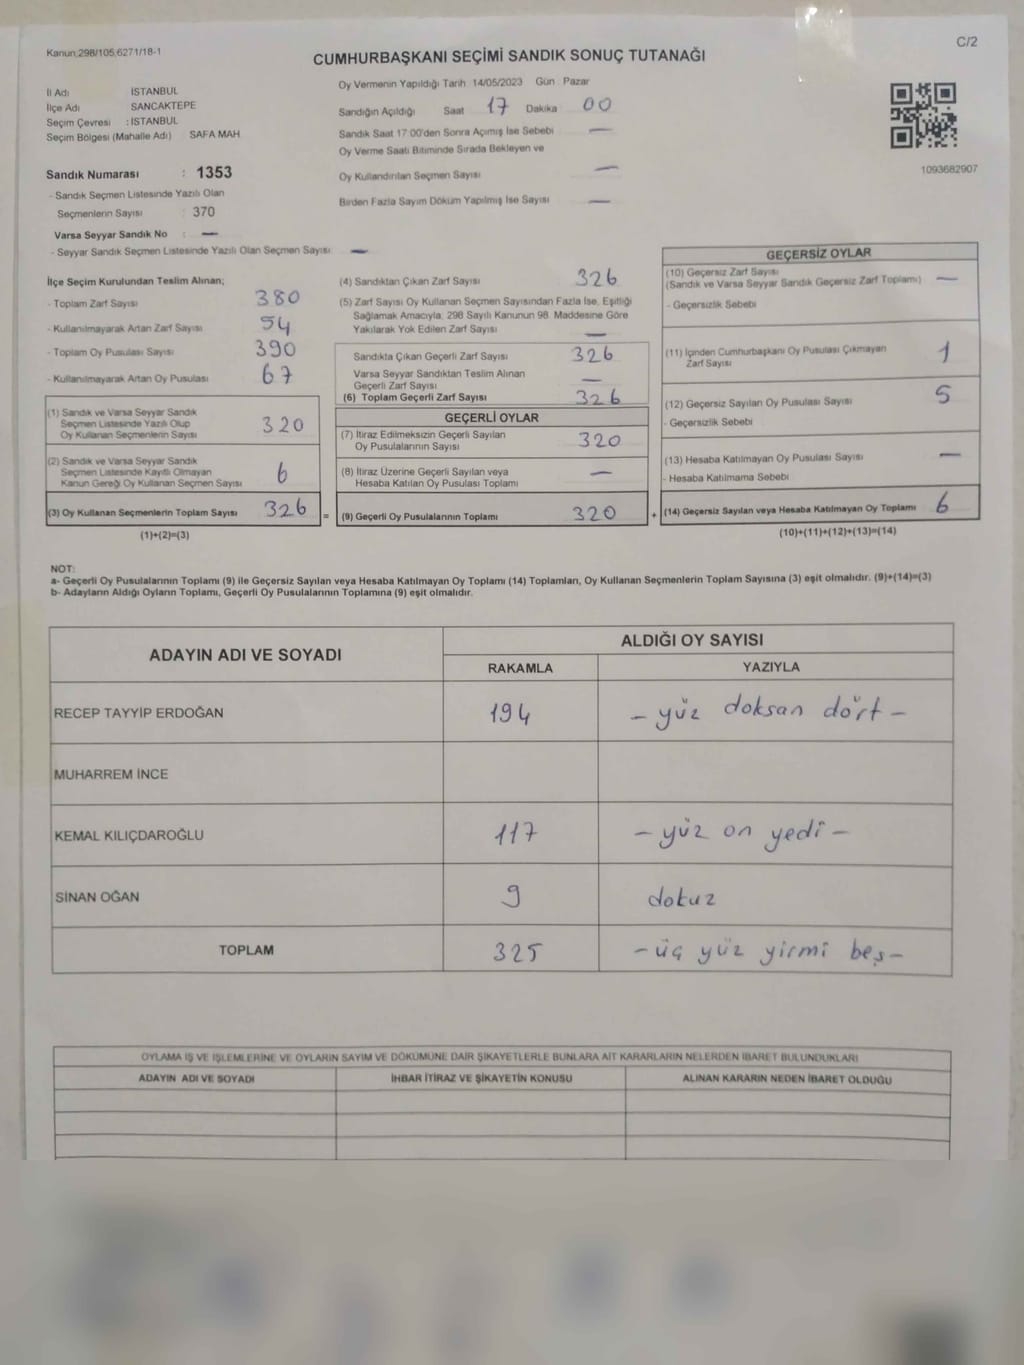 Kanun:298/105,6271/18-1
C/2
CUMHURBAŞKANI SEÇİMİ SANDIK SONUÇ TUTANAĞI
İl Adı İSTANBUL
İlçe Adı SANCAKTEPE
Seçim Çevresi : İSTANBUL
Seçim Bölgesi (Mahalle Adı) SAFA MAH
Oy Vermenin Yapıldığı Tarih 14/05/2023 Gün Pazar
Sandığın Açıldığı Saat 17 Dakika 00
Sandık Saat 17:00'den Sonra Açımış İse Sebebi —
Oy Verme Saati Bitiminde Sırada Bekleyen ve
Oy Kullandırılan Seçmen Sayısı —
Birden Fazla Sayım Döküm Yapılmış İse Sayısı —
1093682907
Sandık Numarası : 1353
- Sandık Seçmen Listesinde Yazılı Olan
Seçmenlerin Sayısı : 370
Varsa Seyyar Sandık No : —
- Seyyar Sandık Seçmen Listesinde Yazılı Olan Seçmen Sayısı —
İlçe Seçim Kurulundan Teslim Alınan;
- Toplam Zarf Sayısı 380
- Kullanılmayarak Artan Zarf Sayısı 54
- Toplam Oy Pusulası Sayısı 390
- Kullanılmayarak Artan Oy Pusulası 67
(1) Sandık ve Varsa Seyyar Sandık
Seçmen Listesinde Yazılı Olup
Oy Kullanan Seçmenlerin Sayısı 320
(2) Sandık ve Varsa Seyyar Sandık
Seçmen Listesinde Kayıtlı Olmayan
Kanun Gereği Oy Kullanan Seçmen Sayısı 6
(3) Oy Kullanan Seçmenlerin Toplam Sayısı 326 =
(1)+(2)=(3)
(4) Sandıktan Çıkan Zarf Sayısı 326
(5) Zarf Sayısı Oy Kullanan Seçmen Sayısından Fazla İse, Eşitliği
Sağlamak Amacıyla, 298 Sayılı Kanunun 98. Maddesine Göre
Yakılarak Yok Edilen Zarf Sayısı —
Sandıkta Çıkan Geçerli Zarf Sayısı 326
Varsa Seyyar Sandıktan Teslim Alınan
Geçerli Zarf Sayısı —
(6) Toplam Geçerli Zarf Sayısı 326
GEÇERLİ OYLAR
(7) İtiraz Edilmeksizin Geçerli Sayılan
Oy Pusulalarının Sayısı 320
(8) İtiraz Üzerine Geçerli Sayılan veya
Hesaba Katılan Oy Pusulası Toplamı —
(9) Geçerli Oy Pusulalarının Toplamı 320 +
GEÇERSİZ OYLAR
(10) Geçersiz Zarf Sayısı
(Sandık ve Varsa Seyyar Sandık Geçersiz Zarf Toplamı) —
- Geçersizlik Sebebi
(11) İçinden Cumhurbaşkanı Oy Pusulası Çıkmayan
Zarf Sayısı 1
(12) Geçersiz Sayılan Oy Pusulası Sayısı 5
- Geçersizlik Sebebi
(13) Hesaba Katılmayan Oy Pusulası Sayısı —
- Hesaba Katılmama Sebebi
(14) Geçersiz Sayılan veya Hesaba Katılmayan Oy Toplamı 6
(10)+(11)+(12)+(13)=(14)
NOT:
a- Geçerli Oy Pusulalarının Toplamı (9) ile Geçersiz Sayılan veya Hesaba Katılmayan Oy Toplamı (14) Toplamları, Oy Kullanan Seçmenlerin Toplam Sayısına (3) eşit olmalıdır. (9)+(14)=(3)
b- Adayların Aldığı Oyların Toplamı, Geçerli Oy Pusulalarının Toplamına (9) eşit olmalıdır.
ADAYIN ADI VE SOYADI ALDIĞI OY SAYISI
RAKAMLA YAZIYLA
RECEP TAYYİP ERDOĞAN 194 – yüz doksan dört –
MUHARREM İNCE
KEMAL KILIÇDAROĞLU 117 – yüz on yedi –
SİNAN OĞAN 9 dokuz
TOPLAM 325 – üç yüz yirmi beş –
OYLAMA İŞ VE İŞLEMLERİNE VE OYLARIN SAYIM VE DÖKÜMÜNE DAİR ŞİKAYETLERLE BUNLARA AİT KARARLARIN NELERDEN İBARET BULUNDUKLARI
ADAYIN ADI VE SOYADI İHBAR İTİRAZ VE ŞİKAYETİN KONUSU ALINAN KARARIN NEDEN İBARET OLDUĞU